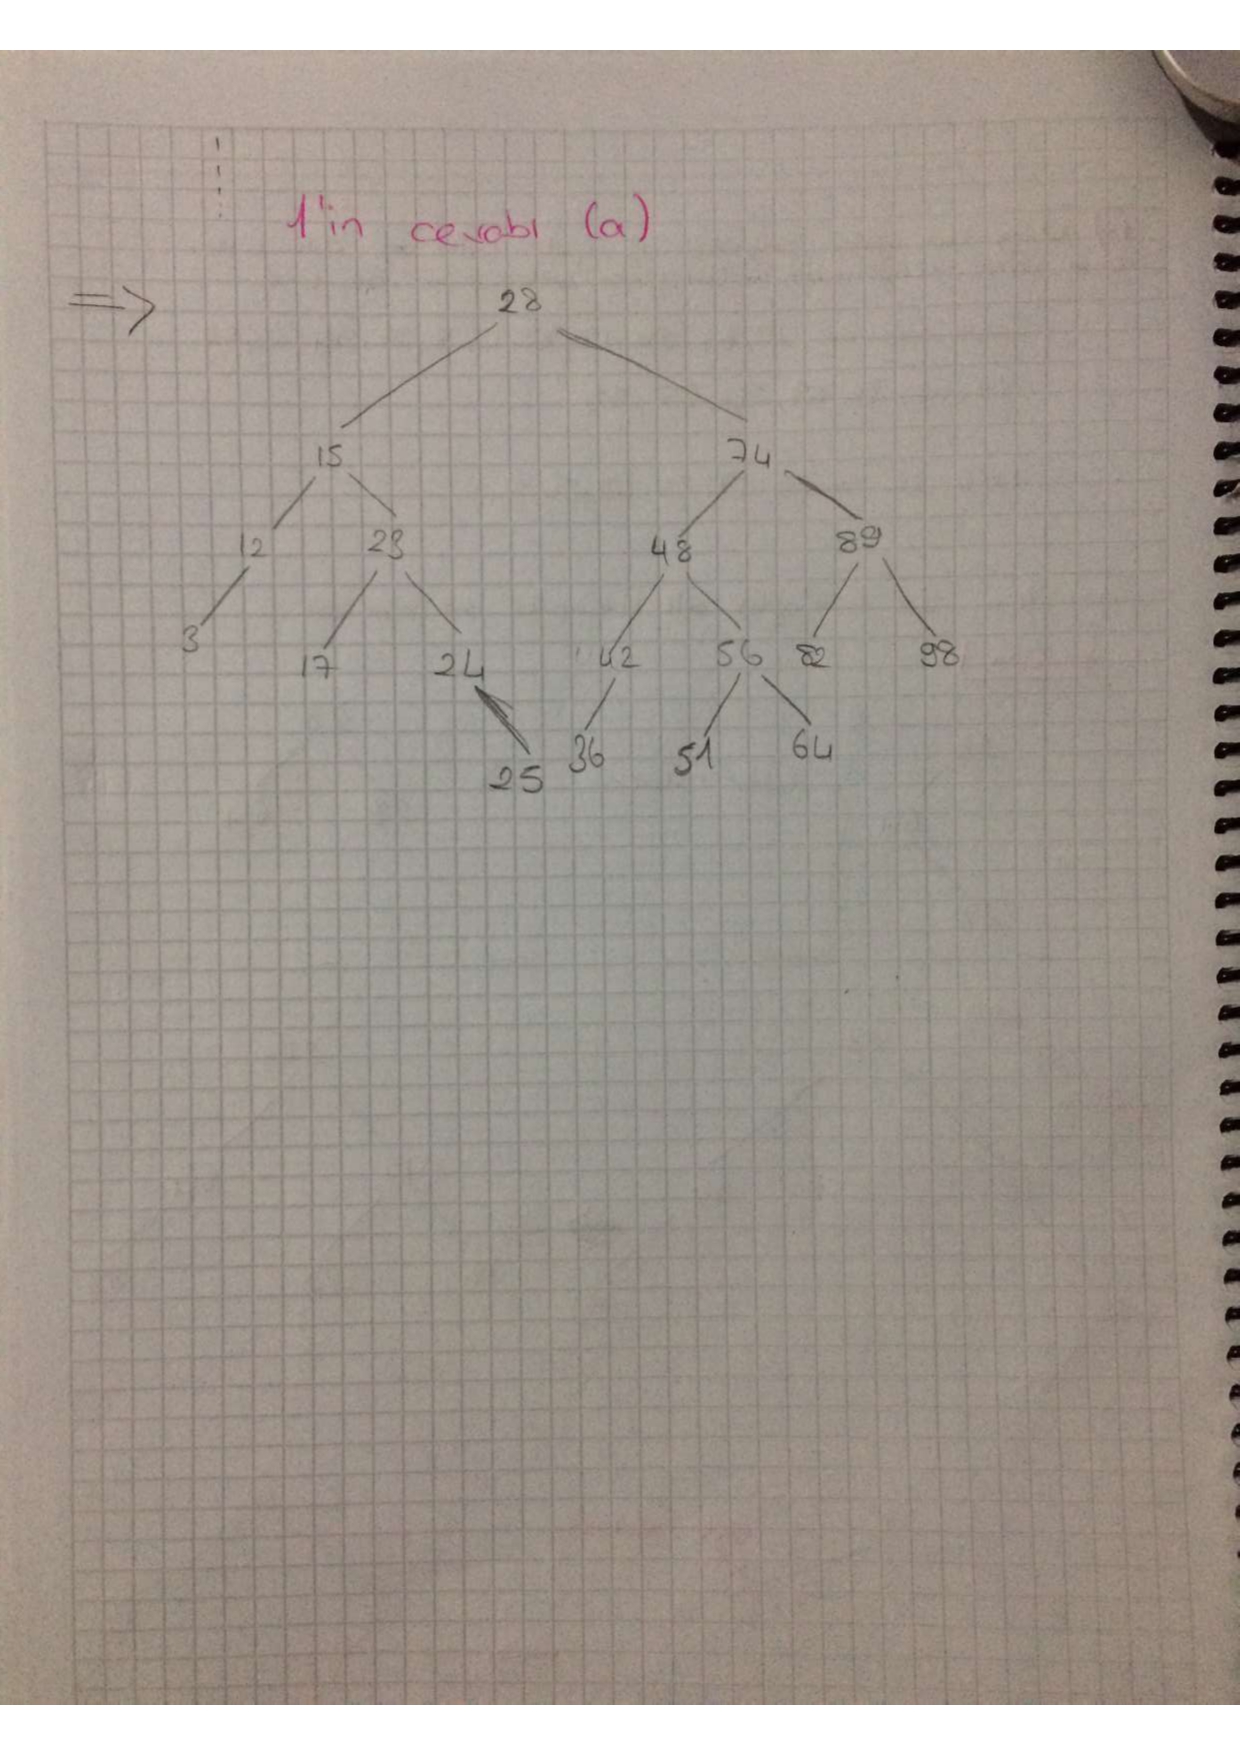 1'in cevabı (a)
=> 28
15 74
12 23 48 89
3 17 24 42 56 82 98
25 36 51 64